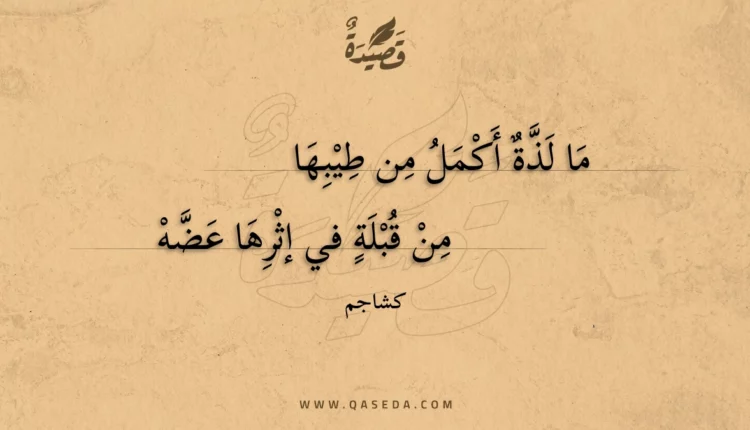 قَصِيْدَةٌ
مَا لَذَّةٌ أَكْمَلُ مِن طِيْبِهَا
مِنْ قُبْلَةٍ في إثْرِهَا عَضَّهْ
كشاجم
WWW.QASEDA.COM